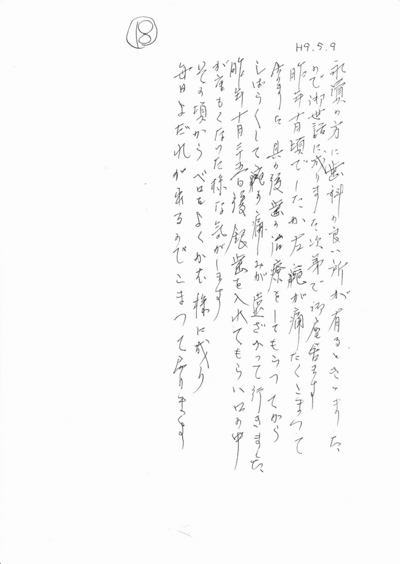 ⑱
H9.5.9
永濱の方に歯科の良い所が有るときゝました
ので御世話に成りました次第で御座居ます
昨年十月頃でしたか左腕が痛たくこまって
居ました 其の後歯の治療をしてもらってから
しばらくして腕の痛みが遠ざかって行きました
昨年十月二十五日後銀歯を入れてもらい口の中
が重もくなった様な気がします
その頃からベロをよくかむ様に成り
毎日よだれが出るのでこまって居ります